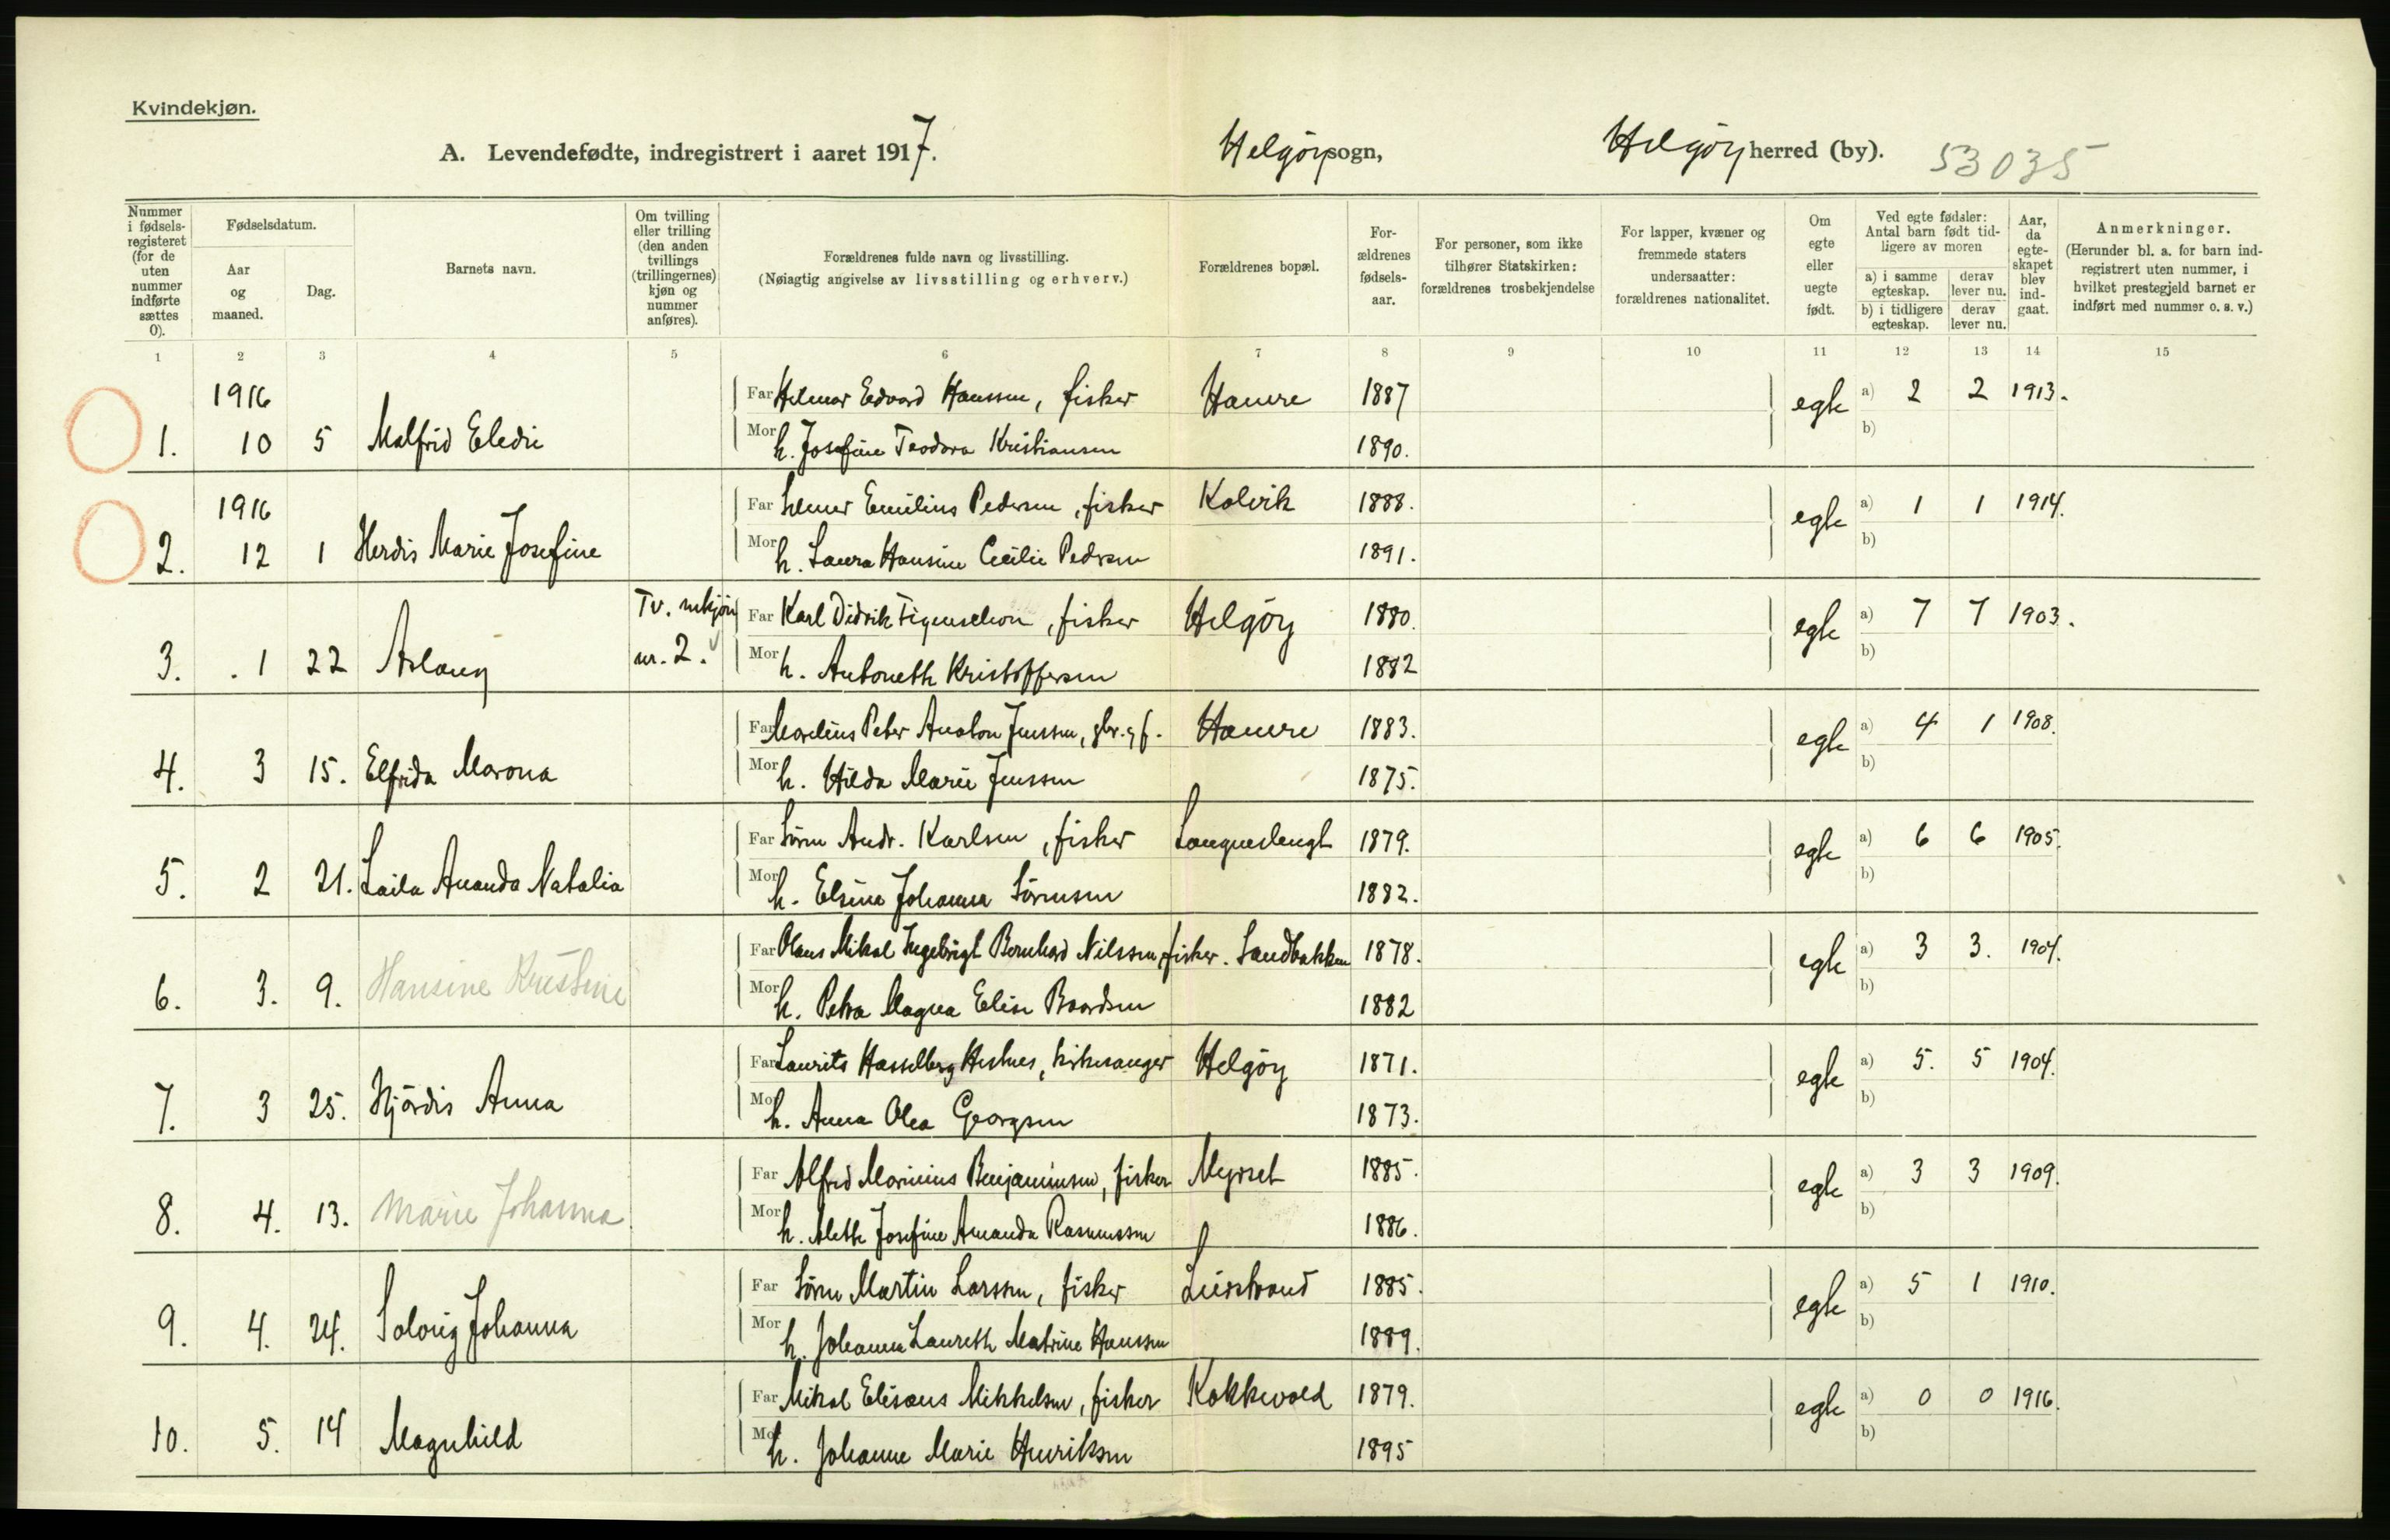 Kvindekjøn.
A. Levendefødte, indregistrert i aaret 1917. Helgöy sogn, Helgöy herred (by). 53035
Nummer i fødsels-registeret (for de uten nummer indførte sættes 0).
Fødselsdatum.
Aar og maaned.
Dag.
Barnets navn.
Om tvilling eller trilling (den anden tvillings (trillingernes) kjøn og nummer anføres).
Forældrenes fulde navn og livsstilling.
(Nøiagtig angivelse av livsstilling og erhverv.)
Forældrenes bopæl.
For-ældrenes fødsels-aar.
For personer, som ikke tilhører Statskirken: forældrenes trosbekjendelse
For lapper, kvæner og fremmede staters undersaatter: forældrenes nationalitet.
Om egte eller uegte født.
Ved egte fødsler: Antal barn født tid-ligere av moren
a) i samme egteskap. derav lever nu.
b) i tidligere egteskap. derav lever nu.
Aar, da egte-skapet blev ind-gaat.
Anmerkninger.
(Herunder bl. a. for barn ind-registrert uten nummer, i hvilket prestegjeld barnet er indført med nummer o. s. v.)
1 2 3 4 5 6 7 8 9 10 11 12 13 14 15
1916 Far Hilmar Edvard Hanssen, fisker Hamre 1887 egte a) 2 2 1913.
1. 10 5 Malfrid Eledie Mor h. Josefine Teodora Kristiansen 1890. b)
1916 Far Emilius Pedersen, fisker Kolvik 1888. egte a) 1 1 1914.
2. 12 1 Herdis Marie Josefine Mor h. Laura Hansine Cecilie Pedersen 1891. b)
Tv. mkjön Far Karl Didrik Figenschou, fisker Helgöy 1880. egte a) 7 7 1903.
3. . 1 22 Aslaug nr. 2. Mor h. Antoneth Kristoffersen 1882 b)
Far Marelius Peter Anaton Jenssen, gbr. og f. Hamre 1883. egte a) 4 1 1908.
4. 3 15. Elfrida Marona Mor h. Hilda Marie Jenssen 1875. b)
Far Sören Andr. Karlsen, fisker Langneslengt 1879. egte a) 6 6 1905.
5. 2 21. Laila Ananda Natalia Mor h. Elsine Johanna Sörensen 1882. b)
Far Olaus Mikal Ingebrigt Bernhard Nilssen, fisker. Sandbakken 1878. egte a) 3 3. 1904.
6. 3. 9. Hansine Kristine Mor h. Petra Magna Elise Baardsen 1882 b)
Far Laurits Hasselberg Hestnes, kirkesanger Helgöy 1871. egte a) 5. 5 1904.
7. 3 25. Hjördis Anna Mor h. Anna Olea Georgsen 1873. b)
Far Alfred Marinius Benjaminsen, fisker Myrset 1885. egte a) 3 3 1909.
8. 4. 13. Marie Johanna Mor h. Aleth Josefine Amanda Rasmussen 1886. b)
Far Sören Martin Larssen, fisker 1885. egte a) 5 1 1910.
9. 4. 24. Solveig Johanna Mor h. Johanna Laureth Matrine Hanssen 1889. b)
Far Mikal Elisæus Mikkelsen, fisker Kokkvold 1879. egte a) 0 0 1916.
10. 5. 14 Magnhild Mor h. Johanne Marie Henriksen 1895 b)